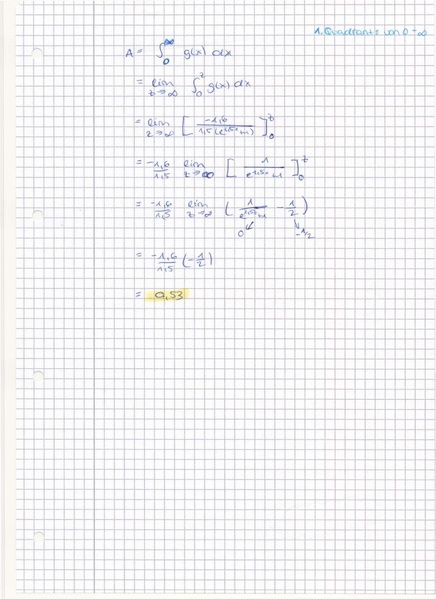 1. Quadrants von 0-∞
A = ∫₀^∞ g(x) dx
= lim z→∞ ∫₀^z g(x) dx
= lim z→∞ [ -1,6 / 1,5(e^1,5x+1) ]₀^z
= -1,6/1,5 lim z→∞ [ 1 / e^1,5x+1 ]₀^z
= -1,6/1,5 lim z→∞ ( 1 / e^1,5z+1 - 1/2 )
0 -1/2
= -1,6/1,5 (-1/2)
= 0,53